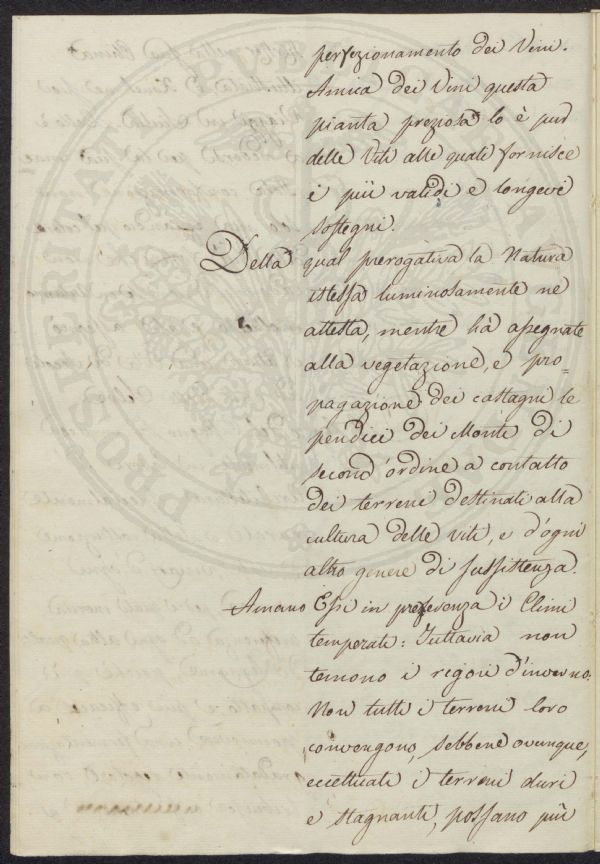 perfezionamento dei Vini.
Amica dei Vini questa
pianta preziosa lo è pur
delle Viti alle quali fornisce
i più validi e longevi
sostegni.
Della qual prerogativa la Natura
istessa luminosamente ne
attesta, mentre ha assegnate
alla vegetazione, e pro=
pagazione dei castagni le
pendici dei Monti di
second'ordine a contatto
dei terreni destinati alla
cultura delle viti, e d'ogni
altro genere di sussistenza.
Amano Essi in preferenza i Climi
temperati: Tuttavia non
temono i rigori d'inverno.
Non tutti i terreni loro
convengono, sebbene ovunque,
eccettuati i terreni duri
e stagnanti, possano più